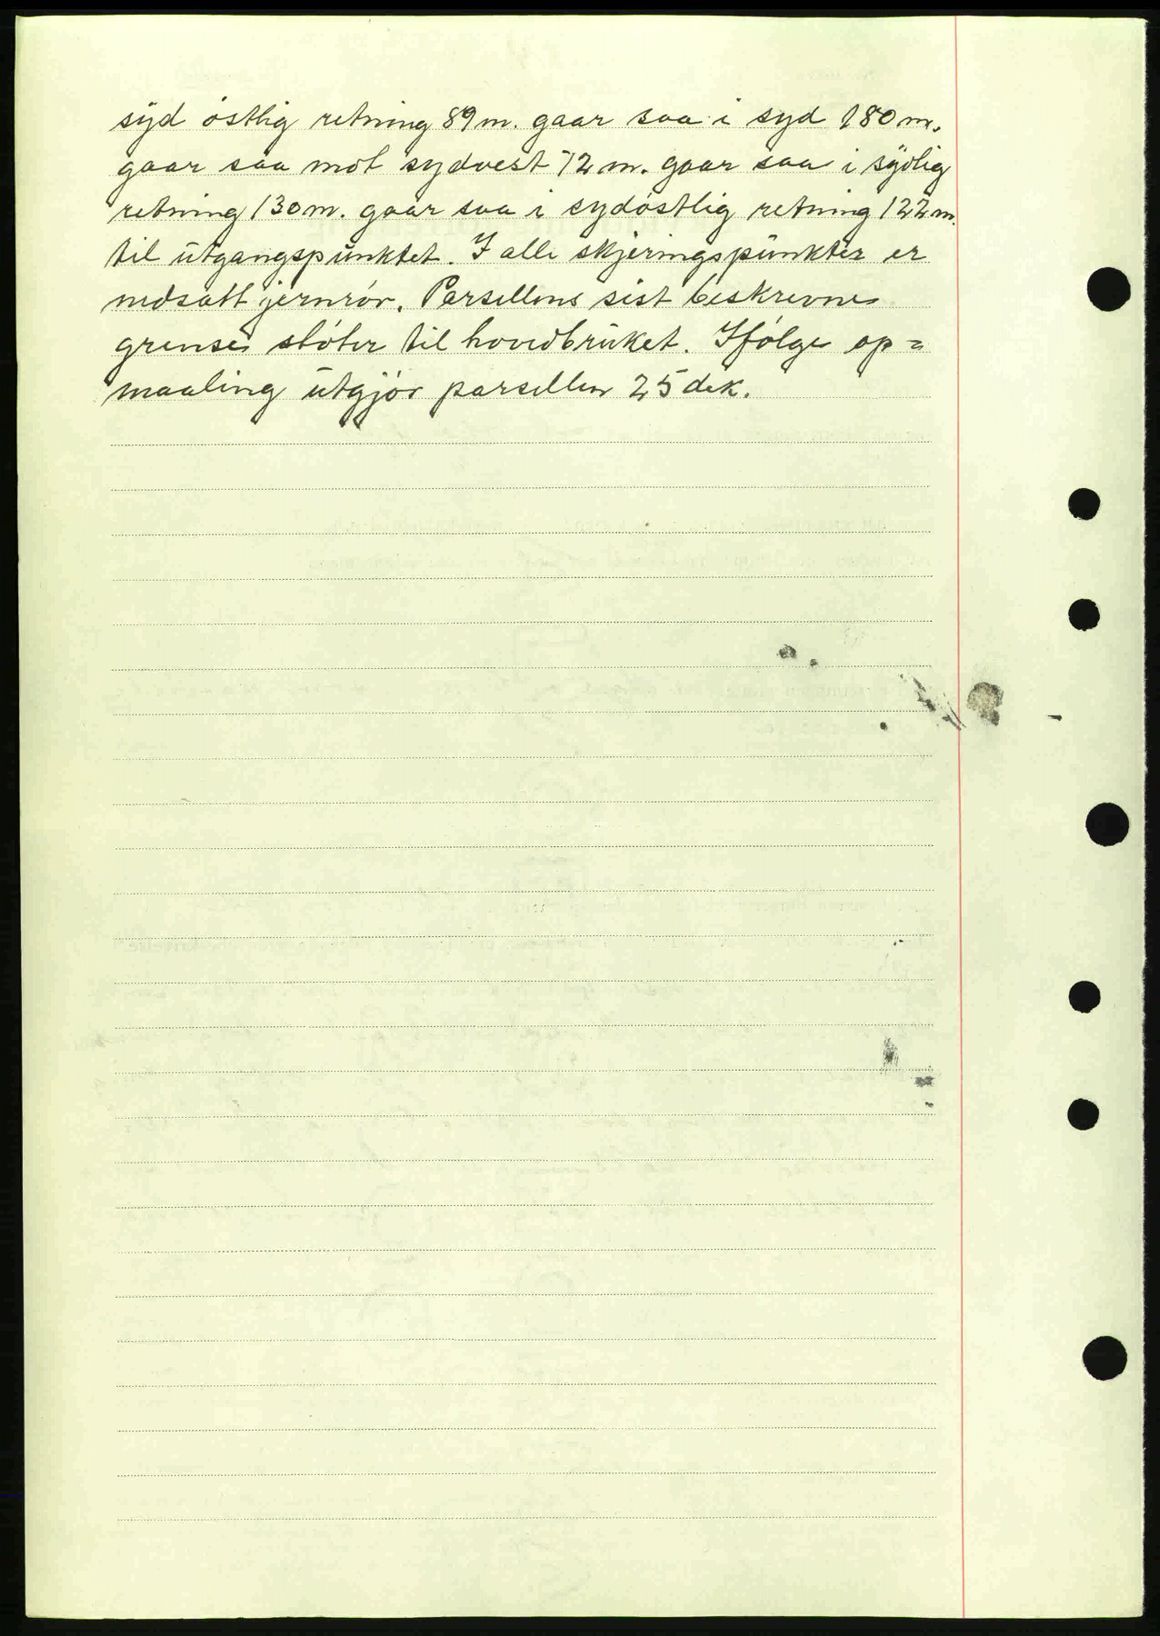 syd östlig retning 89 m. gaar saa i syd 180 m.
gaar saa mot sydvest 72 m. gaar saa i sydlig
retning 130 m. gaar saa i sydöstlig retning 122 m.
til utgangspunktet. I alle skjeringspunkter er
nedsatt jernrör. Parsellens sist beskrevne
grense stöter til hovedbruket. Ifölge op=
maaling utgjör parsellen 25 dek.